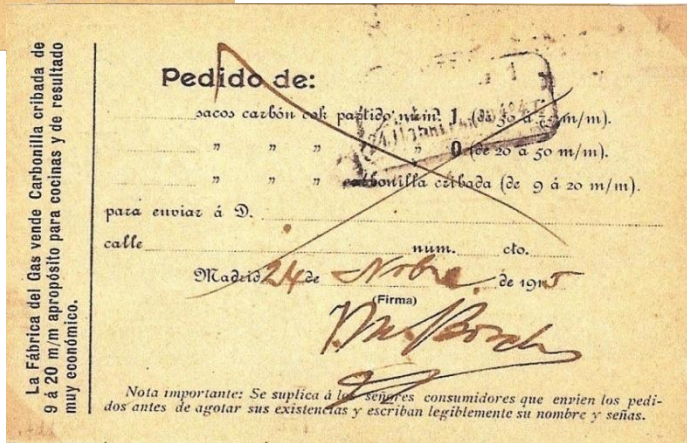 La Fábrica del Gas vende Carbonilla cribada de
9 á 20 m/m apropósito para cocinas y de resultado
muy económico.
Pedido de:
sacos carbón cok partido núm. 1 (de 30 á m/m).
" " " " 0 (de 20 a 50 m/m).
" " " carbonilla cribada (de 9 á 20 m/m).
para enviar á D.
calle num. cto.
Madrid 24 de Nobre. de 1915
(Firma)
Nota importante: Se suplica á los señores consumidores que envien los pedi-
dos antes de agotar sus existencias y escriban legiblemente su nombre y señas.